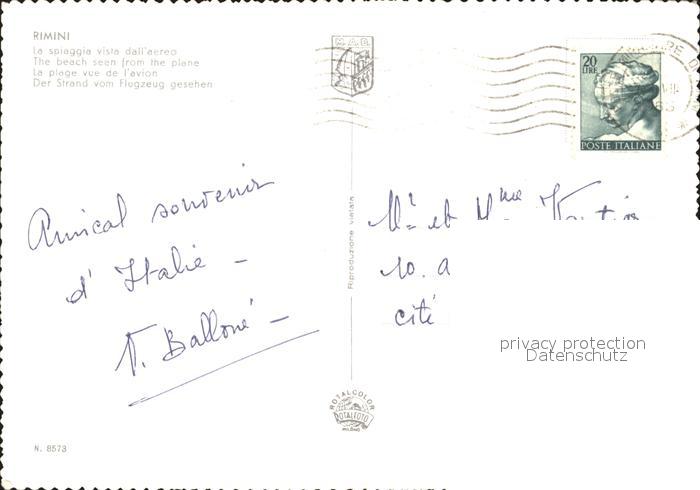 RIMINI
La spiaggia vista dall'aereo
The beach seen from the plane
La plage vue de l'avion
Der Strand vom Flugzeug gesehen
M.A.B.
20
LIRE
POSTE ITALIANE
Amical souvenir
d'Italie -
Balloné -
Riproduzione vietata
Mr et Mme
10. a
cité
privacy protection
Datenschutz
ROTALCOLOR
ROTALFOTO
MILANO
N. 8573